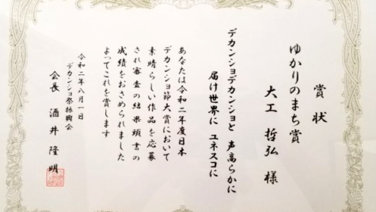 賞状
ゆかりのまち賞
大工 哲弘 様
デカンショデカンショと 声高らかに
届け世界に ユネスコに
あなたは令和二年度日本
デカンショ節大賞において
素晴らしい作品を応募
され審査の結果頭書の
成績をおさめられました
よってこれを賞します
令和二年八月一日
デカンショ祭振興会
会長 酒井 隆明